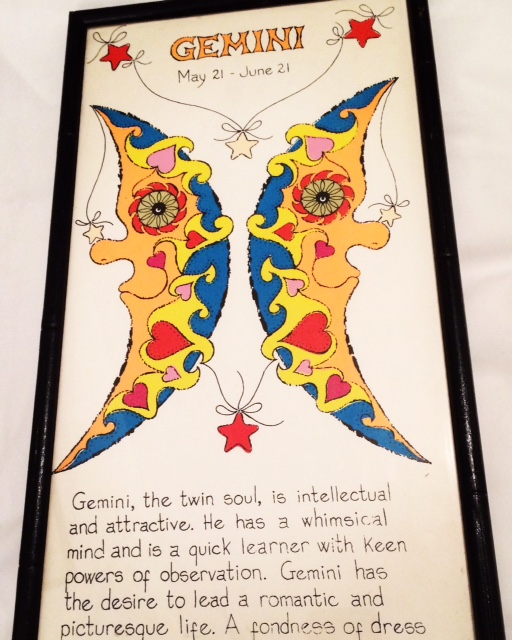 GEMINI
May 21 - June 21
Gemini, the twin soul, is intellectual
and attractive. He has a whimsical
mind and is a quick learner with keen
powers of observation. Gemini has
the desire to lead a romantic and
picturesque life. A fondness of dress